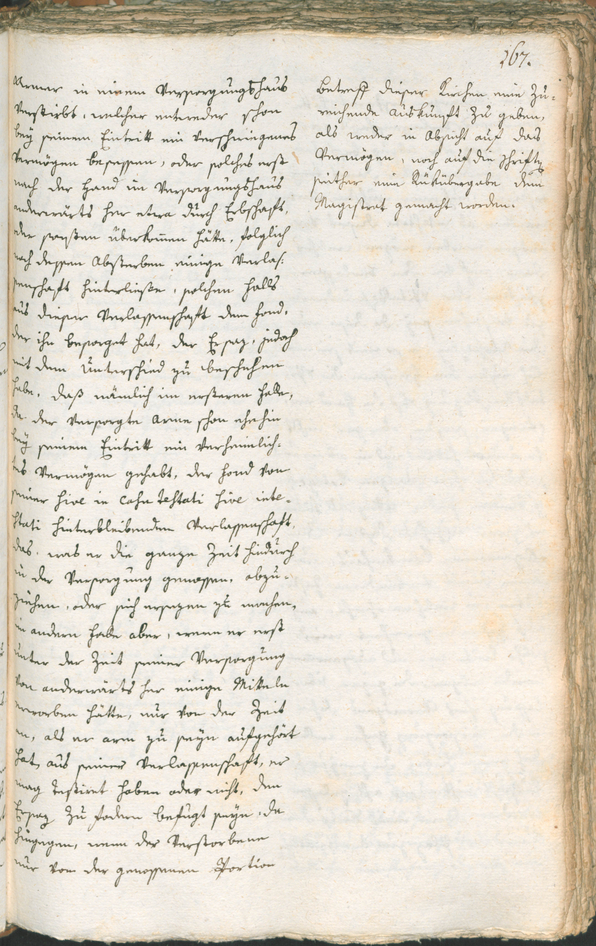 167.
Armer in einem Versorgungshaus
verstirbt, welcher entweder schon
bey seinem Eintritt ein verschwiegenes
Vermögen besessen, oder solches erst
nach der Hand im Versorgungshaus
anderwärts her etwa durch Erbschaft,
oder sonsten überkommen hätte, folglich
nach dessen Absterben einige Verlas-
senschaft hinterließe, solchen Falls
aus dieser Verlassenschaft dem Fond,
der ihn besorget hat, der Ersaz, jedoch
mit dem Unterschied zu beschehen
habe, daß nämlich im ersteren Falle,
da der Versorgte Arme schon ehehin
bey seinem Eintritt ein verheimlich-
tes Vermögen gehabt, der Fond von
seiner sive in casu testati sive inte-
stati hinterbleibenden Verlassenschaft,
das, was er die ganze Zeit hindurch
in der Versorgung genossen, abzu-
ziehen, oder sich ersezen zu machen,
im andern Falle aber, wenn er erst
unter der Zeit seiner Versorgung
von anderwärts her einige Mitteln
erworben hätte, nur von der Zeit
an, als er arm zu seyn aufgehört
hat, aus seiner Verlassenschaft, er
mag testiret haben oder nicht, den
Ersaz zu fodern befugt seye, da
hingegen, wenn der Verstorbene
nur von der genossenen Portion
Betreff dieser Kirchen eine Zu-
reichende Auskunft zu geben,
als weder in Absicht auf das
Vermögen, noch auf die Schriften
seither eine Rükübergabe dem
Magistrat gemacht worden.